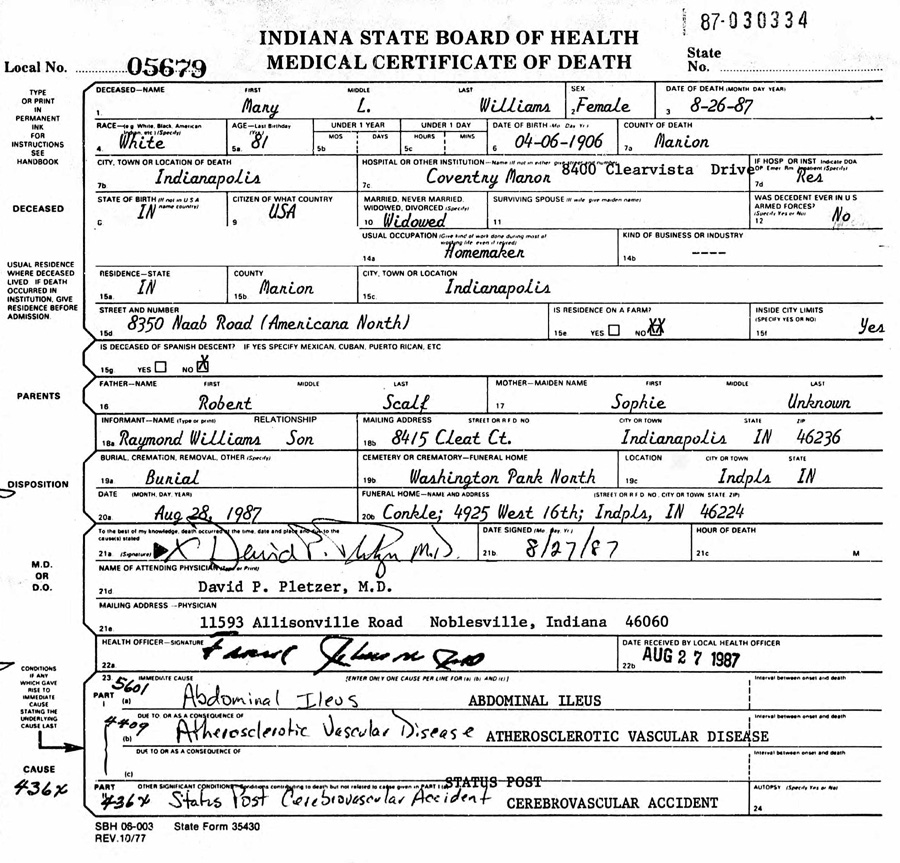 87-030334
INDIANA STATE BOARD OF HEALTH
MEDICAL CERTIFICATE OF DEATH
Local No. 05679
State No.
TYPE OR PRINT IN PERMANENT INK FOR INSTRUCTIONS SEE HANDBOOK
DECEASED—NAME FIRST MIDDLE LAST SEX DATE OF DEATH (MONTH DAY YEAR)
1. Mary L. Williams 2 Female 3 8-26-87
RACE—(e.g. White, Black, American Indian, etc.) (Specify) AGE—Last Birthday (Yrs) UNDER 1 YEAR UNDER 1 DAY DATE OF BIRTH (Mo Day Yr) COUNTY OF DEATH
MOS DAYS HOURS MINS
4. White 5a 81 5b 5c 6 04-06-1906 7a Marion
CITY, TOWN OR LOCATION OF DEATH HOSPITAL OR OTHER INSTITUTION—Name (If not in either give street and number IF HOSP OR INST Indicate DOA OP Emer Rm Inpatient (Specify)
7b Indianapolis 7c Coventry Manor 8400 Clearvista Drive 7d Res
DECEASED
STATE OF BIRTH (If not in U S A name country) CITIZEN OF WHAT COUNTRY MARRIED, NEVER MARRIED, WIDOWED, DIVORCED (Specify) SURVIVING SPOUSE (If wife give maiden name) WAS DECEDENT EVER IN U S ARMED FORCES? (Specify Yes or No)
8 IN 9 USA 10 Widowed 11 12 No
USUAL OCCUPATION (Give kind of work done during most of working life even if retired) KIND OF BUSINESS OR INDUSTRY
14a Homemaker 14b ----
USUAL RESIDENCE WHERE DECEASED LIVED IF DEATH OCCURRED IN INSTITUTION, GIVE RESIDENCE BEFORE ADMISSION.
RESIDENCE—STATE COUNTY CITY, TOWN OR LOCATION
15a. IN 15b Marion 15c Indianapolis
STREET AND NUMBER IS RESIDENCE ON A FARM? INSIDE CITY LIMITS (SPECIFY YES OR NO)
15d 8350 Naab Road (Americana North) 15e YES NO XX 15f Yes
IS DECEASED OF SPANISH DESCENT? IF YES SPECIFY MEXICAN, CUBAN, PUERTO RICAN, ETC
15g YES NO X
PARENTS
FATHER—NAME FIRST MIDDLE LAST MOTHER—MAIDEN NAME FIRST MIDDLE LAST
16 Robert Scalf 17 Sophie Unknown
INFORMANT—NAME (Type or print) RELATIONSHIP MAILING ADDRESS STREET OR R F D NO CITY OR TOWN STATE ZIP
18a Raymond Williams Son 18b 8415 Cleat Ct. Indianapolis IN 46236
DISPOSITION
BURIAL, CREMATION, REMOVAL, OTHER (Specify) CEMETERY OR CREMATORY—FUNERAL HOME LOCATION CITY OR TOWN STATE
19a Burial 19b Washington Park North 19c Indpls IN
DATE (MONTH, DAY, YEAR) FUNERAL HOME—NAME AND ADDRESS (STREET OR R F D NO, CITY OR TOWN STATE ZIP)
20a Aug 28, 1987 20b Conkle; 4925 West 16th; Indpls, IN 46224
To the best of my knowledge, death occurred at the time, date and place and due to the cause(s) stated DATE SIGNED (Mo Day, Yr.) HOUR OF DEATH
21a (Signature) X David P. Pletzer M.D. 21b 8/27/87 21c M
M.D. OR D.O.
NAME OF ATTENDING PHYSICIAN (Type or Print)
21d David P. Pletzer, M.D.
MAILING ADDRESS—PHYSICIAN
21e 11593 Allisonville Road Noblesville, Indiana 46060
HEALTH OFFICER—SIGNATURE DATE RECEIVED BY LOCAL HEALTH OFFICER
22a 22b AUG 27 1987
CONDITIONS IF ANY WHICH GAVE RISE TO IMMEDIATE CAUSE STATING THE UNDERLYING CAUSE LAST
23 IMMEDIATE CAUSE [ENTER ONLY ONE CAUSE PER LINE FOR (a) (b) AND (c)] Interval between onset and death
PART I 5601 (a) Abdominal Ileus ABDOMINAL ILEUS
DUE TO, OR AS A CONSEQUENCE OF Interval between onset and death
4409 (b) Atherosclerotic Vascular Disease ATHEROSCLEROTIC VASCULAR DISEASE
DUE TO OR AS A CONSEQUENCE OF Interval between onset and death
(c)
CAUSE
436X
PART OTHER SIGNIFICANT CONDITIONS Conditions contributing to death but not related to cause given in PART I (a) STATUS POST AUTOPSY (Specify Yes or No)
436X Status Post Cerebrovascular Accident CEREBROVASCULAR ACCIDENT 24
SBH 06-003 State Form 35430
REV. 10/77